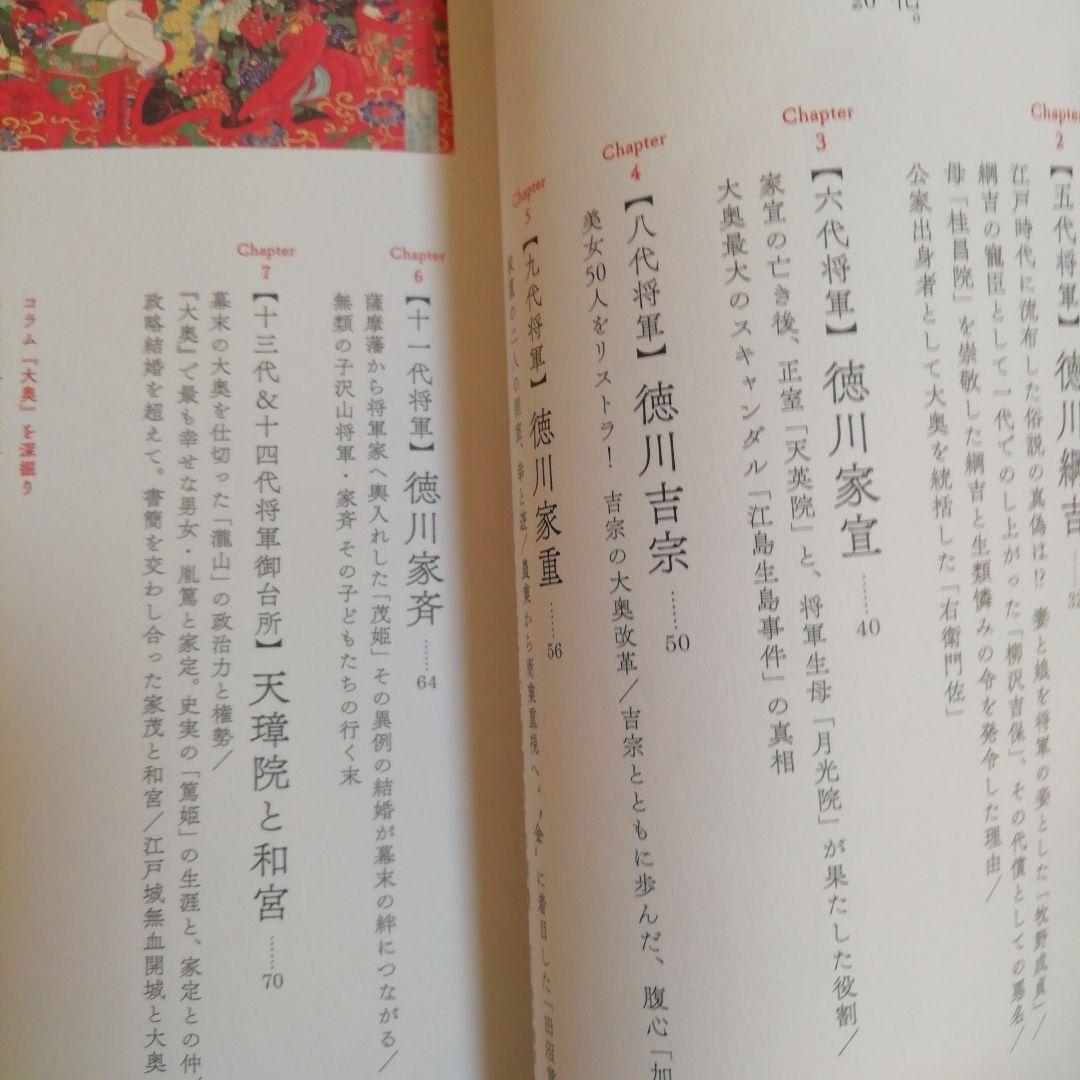 化。
20
Chapter
2
【五代将軍】徳川綱吉……
江戸時代に流布した俗説の真偽は!? 妻と娘を将軍の妾とした「牧野成貞」/
綱吉の寵臣として一代でのし上がった「柳沢吉保」、その代償としての悪名/
母「桂昌院」を崇敬した綱吉と生類憐みの令を発令した理由/
公家出身者として大奥を統括した「右衛門佐」
Chapter
3
【六代将軍】徳川家宣……40
家宣の亡き後、正室「天英院」と、将軍生母「月光院」が果たした役割/
大奥最大のスキャンダル「江島生島事件」の真相
Chapter
4
【八代将軍】徳川吉宗……50
美女50人をリストラ! 吉宗の大奥改革/吉宗とともに歩んだ、腹心「加
Chapter
5
【九代将軍】徳川家重……56
家重の二人の側室、幸と遊/農業から商業重視へ。“金”に着目した「田沼
Chapter
6
【十一代将軍】徳川家斉……64
薩摩藩から将軍家へ輿入れした「茂姫」その異例の結婚が幕末の絆につながる/
無類の子沢山将軍・家斉 その子どもたちの行く末
Chapter
7
【十三代&十四代将軍御台所】天璋院と和宮……70
幕末の大奥を仕切った「瀧山」の政治力と権勢/
「大奥」で最も幸せな男女・胤篤と家定。史実の「篤姫」の生涯と、家定との仲/
政略結婚を超えて。書簡を交わし合った家茂と和宮/江戸城無血開城と大奥
コラム「大奥」を深掘り